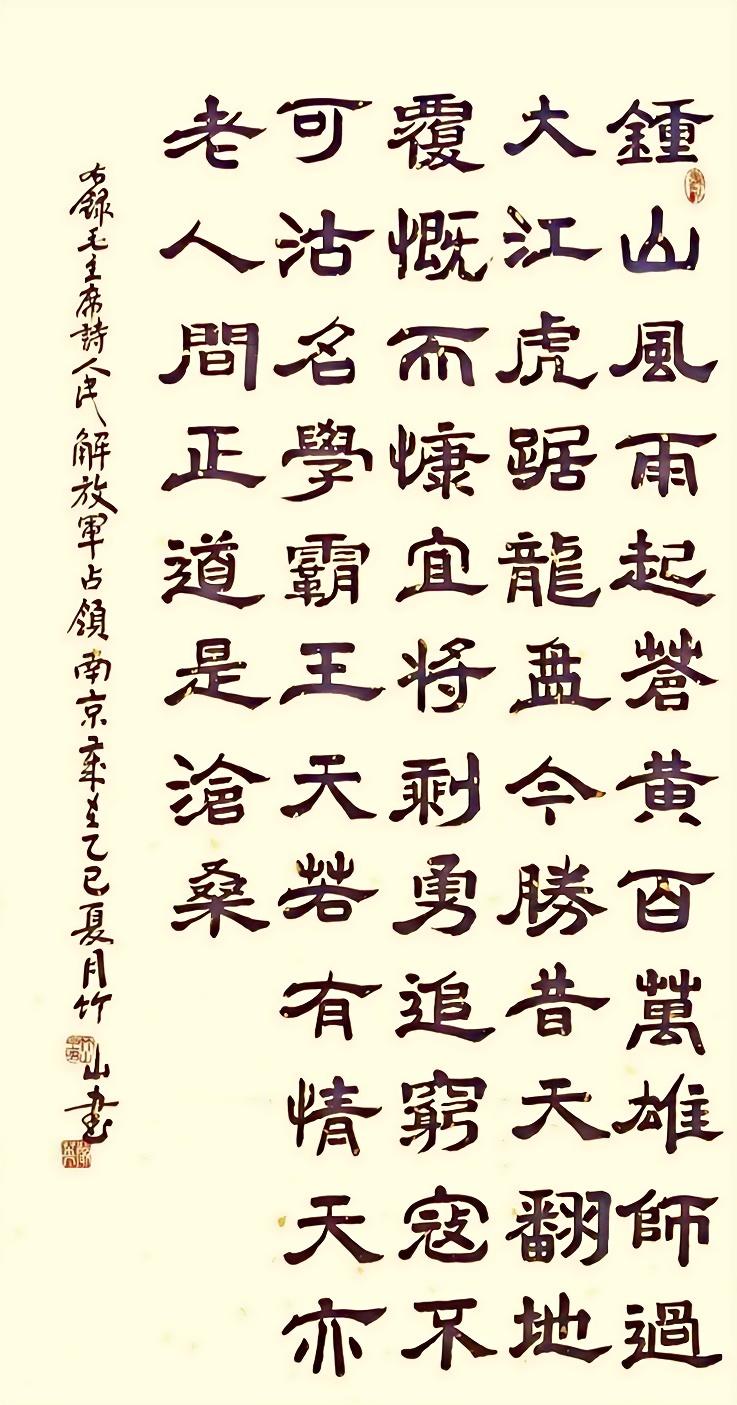 鍾山風雨起蒼黄百萬雄師過
大江虎踞龍盘今勝昔天翻地
覆慨而慷宜将剩勇追窮寇不
可沽名學霸王天若有情天亦
老人間正道是滄桑
右錄毛主席詩人民解放軍占領南京歲在乙巳夏月竹山書